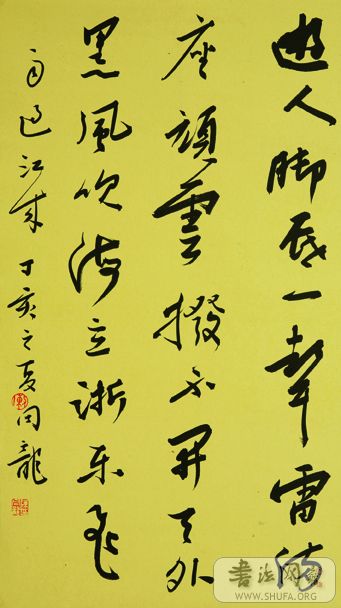 遊人脚底一聲雷滿
座頑雲撥不開天外
黑風吹海立浙东飛
雨過江来 丁亥之夏 龍
書法网
WWW.SHUFA.ORG